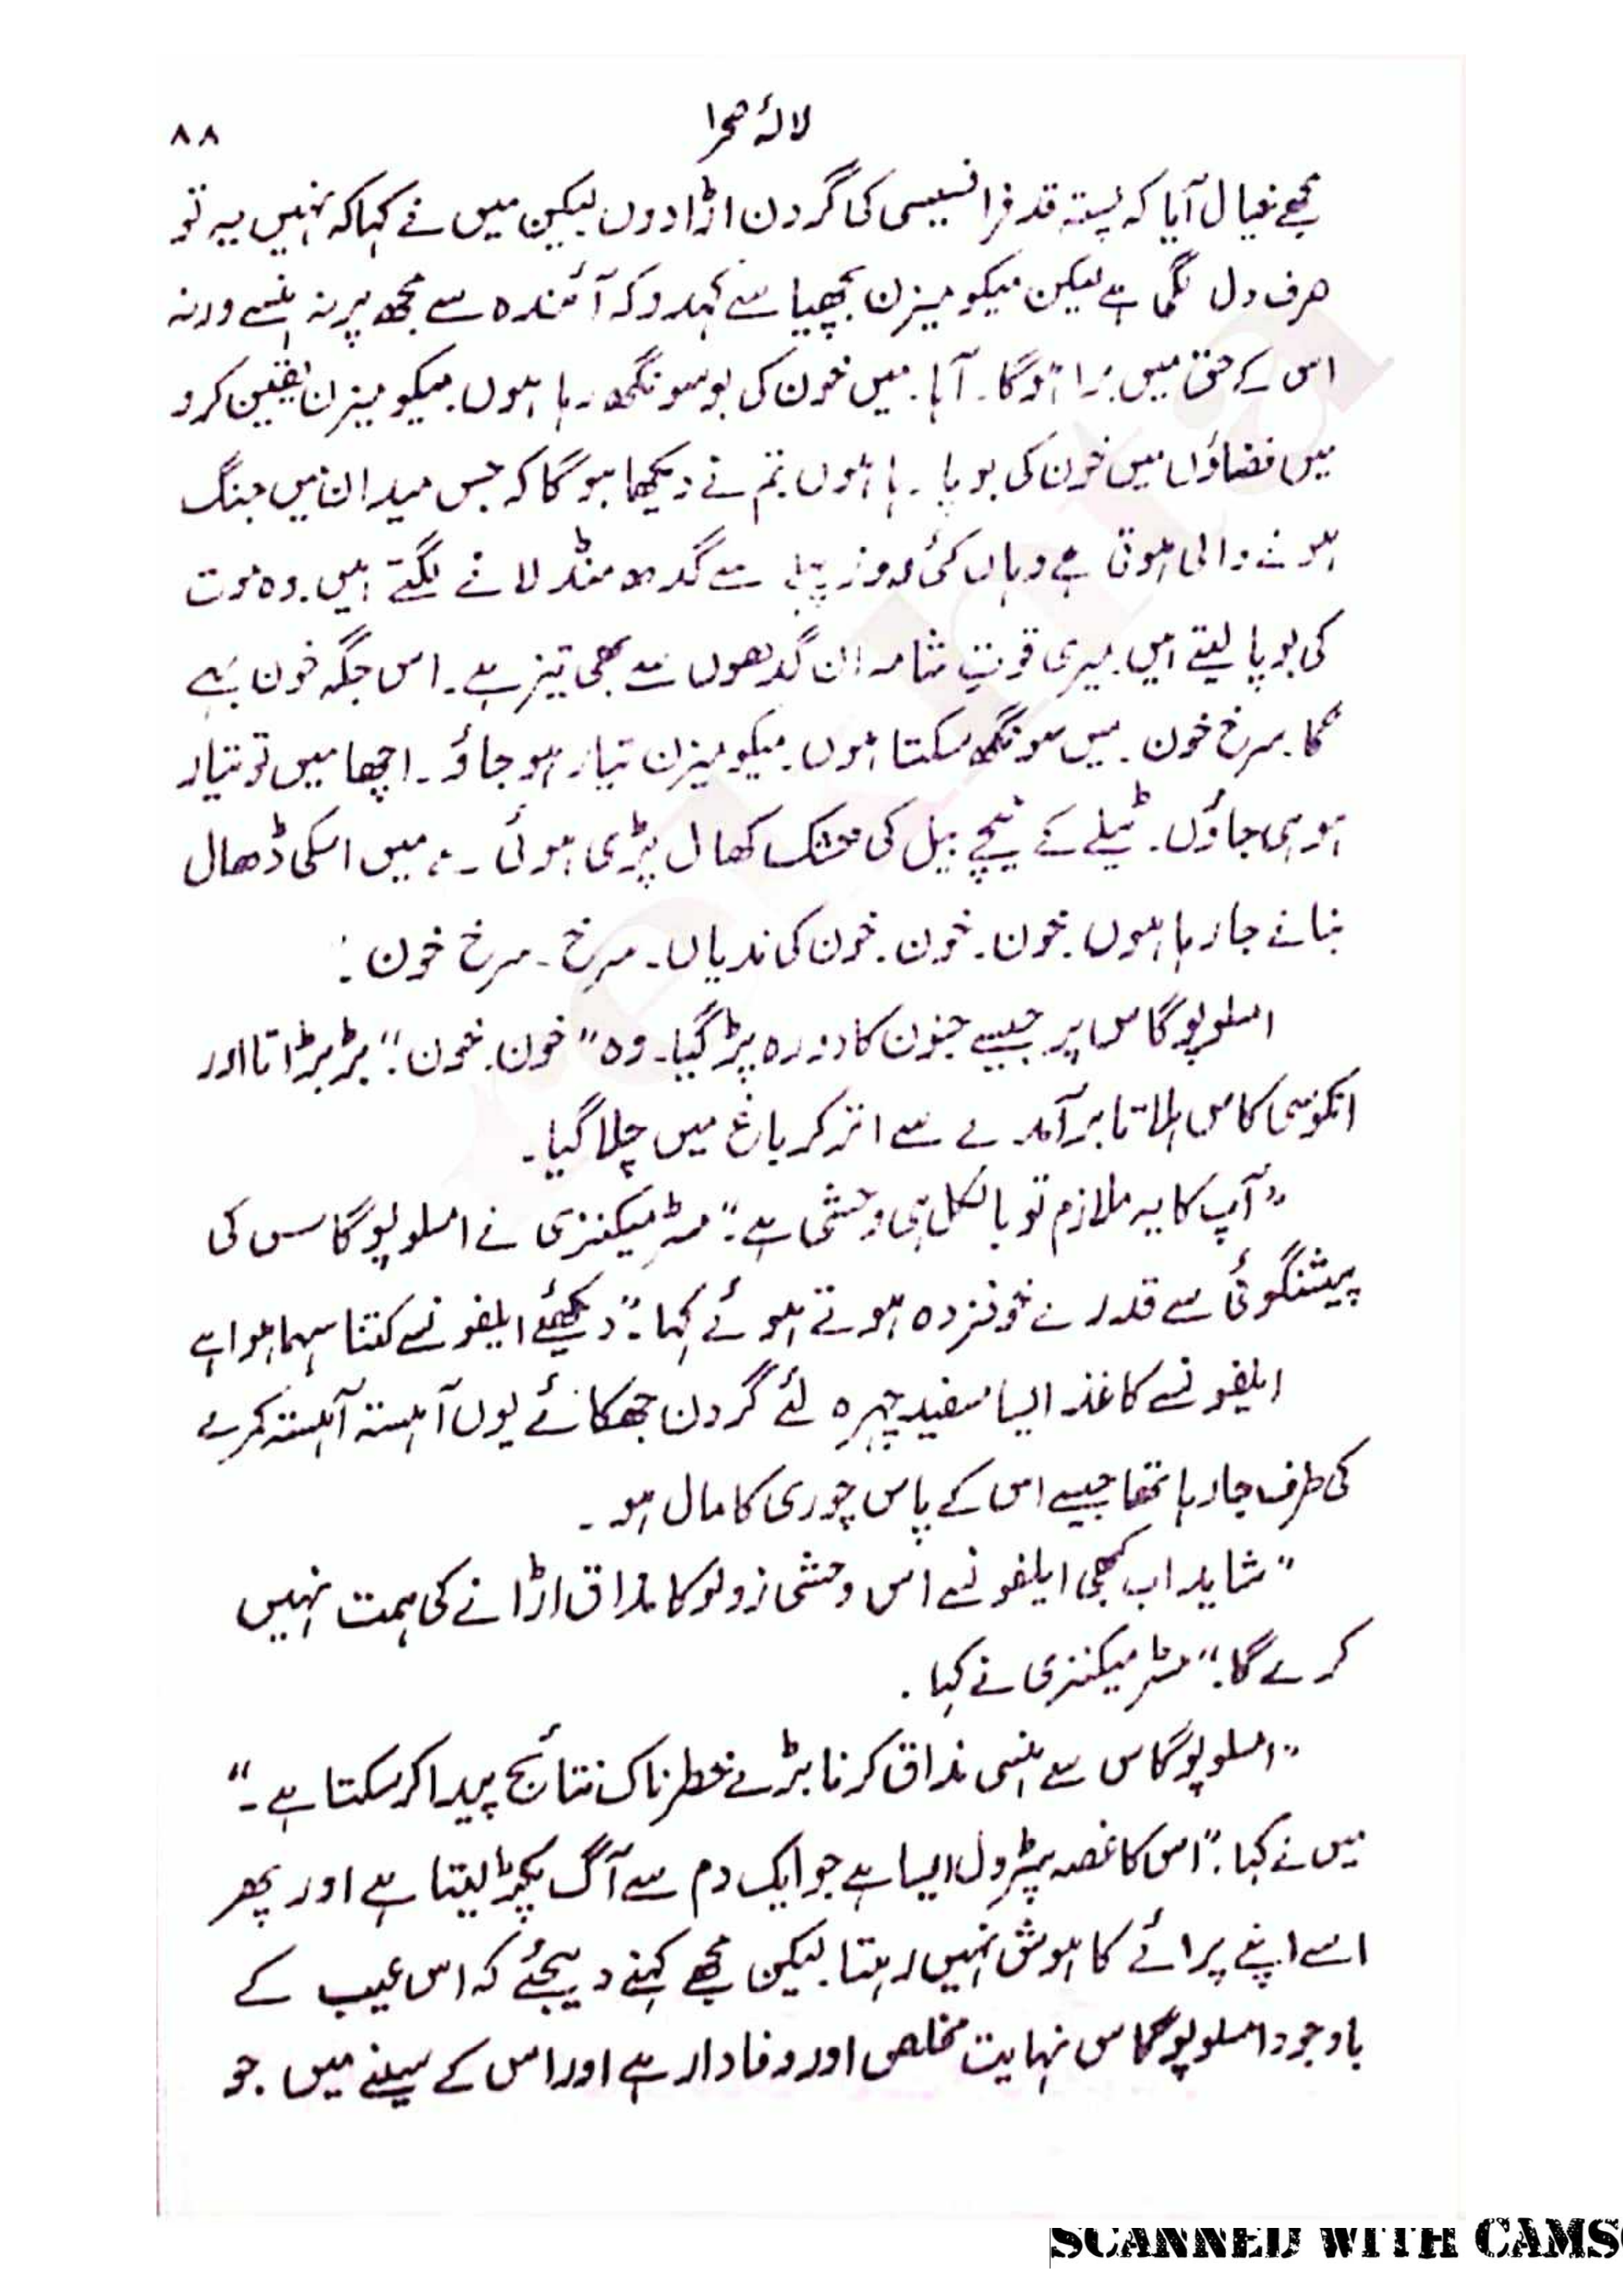 لالۂ صحرا
۸۸
مجھے خیال آیا کہ پستہ قد فرانسیسی کی گردن اڑا دوں لیکن میں نے کہا کہ نہیں یہ تو
صرف دل لگی ہے لیکن میکومیزن بچھیا سے کہدو کہ آئندہ سے مجھ پر نہ ہنسے ورنہ
اس کے حق میں برا ہوگا۔ آہا۔ میں خون کی بو سونگھ رہا ہوں۔ میکومیزن یقین کرو
میں فضاؤں میں خون کی بو پا رہا ہوں۔ تم نے دیکھا ہوگا کہ جس میدان میں جنگ
ہونے والی ہوتی ہے وہاں کئی روز پہلے سے گدھ منڈلانے لگتے ہیں۔ وہ موت
کی بو پا لیتے ہیں۔ میری قوتِ شامہ ان گدھوں سے بھی تیز ہے۔ اس جگہ خون بہے
گا۔ سرخ خون۔ میں سونگھ سکتا ہوں۔ میکومیزن تیار ہو جاؤ۔ اچھا میں تو تیار
ہو ہی جاؤں۔ ٹیلے کے نیچے بیل کی خشک کھال پڑی ہوئی ہے، میں اسکی ڈھال
بنانے جا رہا ہوں۔ خون۔ خون۔ خون کی ندیاں۔ سرخ۔ سرخ خون۔"
امسلوپوگاس پر جیسے جنون کا دورہ پڑ گیا۔ وہ "خون۔ خون۔" بڑبڑاتا اور
انکوسی کاس ہلاتا برآمدے سے اتر کر باغ میں چلا گیا۔
"آپ کا یہ ملازم تو بالکل ہی وحشی ہے۔" مسٹر میکنزی نے امسلوپوگاس کی
پیشنگوئی سے قدرے خوفزدہ ہوتے ہوئے کہا۔ "دیکھئے ایلفونسے کتنا سہما ہوا ہے
ایلفونسے کاغذ ایسا سفید چہرہ لئے گردن جھکائے یوں آہستہ آہستہ کمرے
کی طرف جا رہا تھا جیسے اس کے پاس چوری کا مال ہو۔
"شاید اب کبھی ایلفونسے اس وحشی زولو کا مذاق اڑانے کی ہمت نہیں
کرے گا۔" مسٹر میکنزی نے کہا۔
"امسلوپوگاس سے ہنسی مذاق کرنا بڑے خطرناک نتائج پیدا کر سکتا ہے۔"
میں نے کہا۔ "اس کا غصہ پٹرول ایسا ہے جو ایک دم سے آگ پکڑ لیتا ہے اور پھر
اسے اپنے پرائے کا ہوش نہیں رہتا۔ لیکن مجھے کہنے دیجئے کہ اس عیب کے
باوجود امسلوپوگاس نہایت مخلص اور وفادار ہے اور اس کے سینے میں جو
SCANNED WITH CAMS